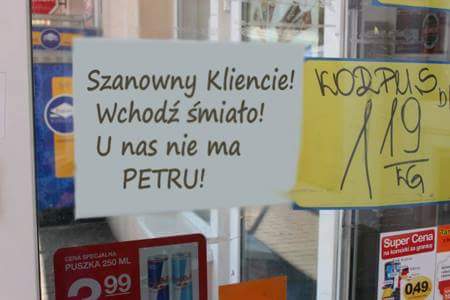 Szanowny Kliencie!
Wchodź śmiało!
U nas nie ma
PETRU!
KORPUS
119
KG
CENA SPECJALNA
PUSZKA 250 ML
3 99
Super Cena
na komórki za granicę
0,49